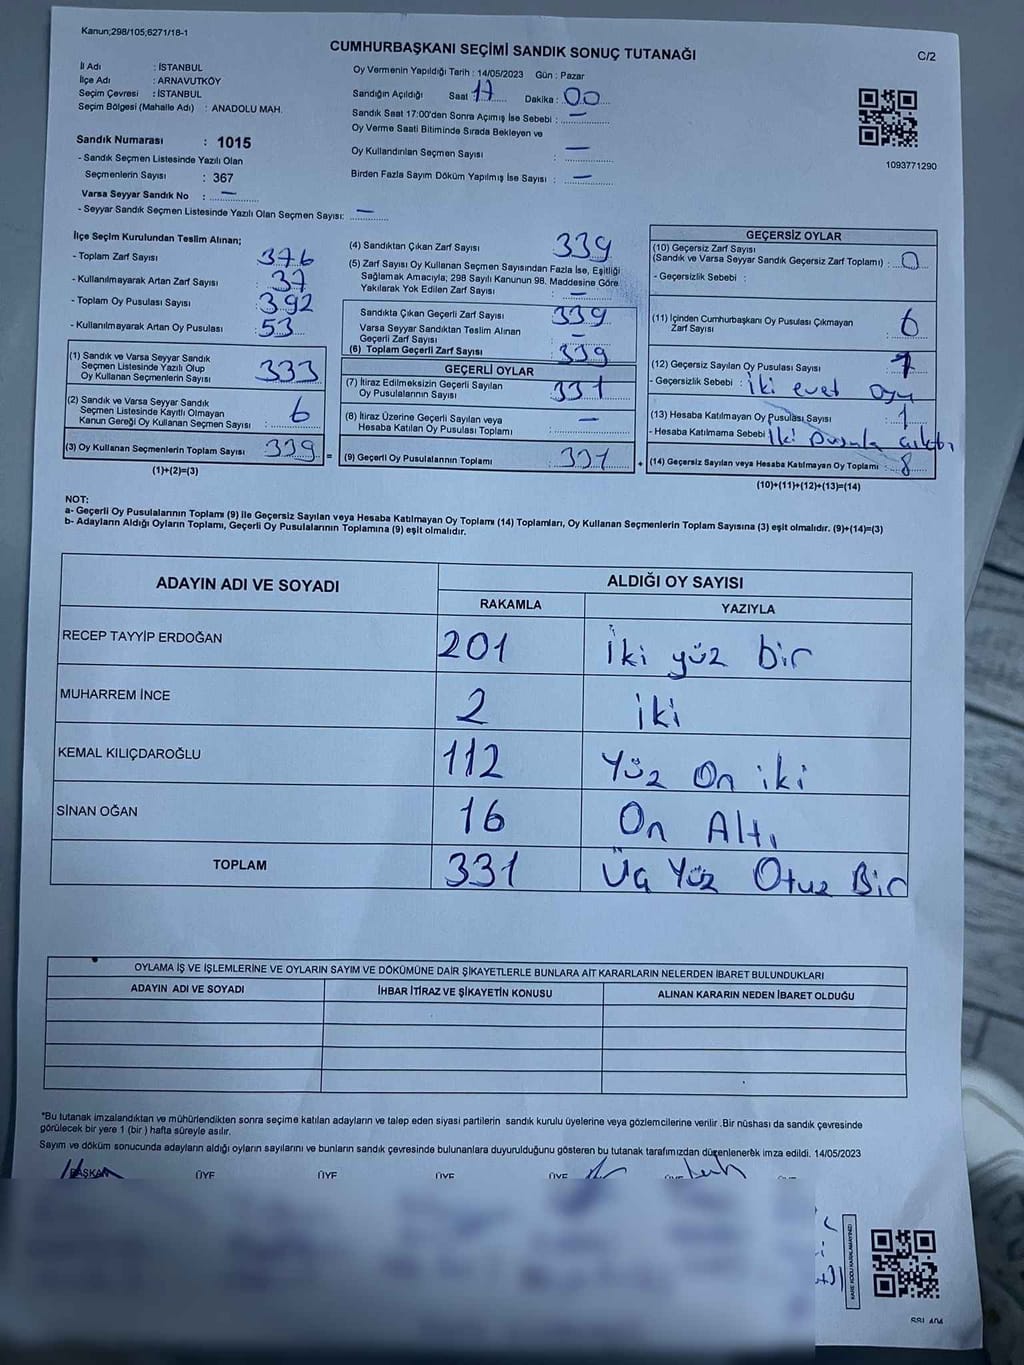 Kanun;298/105;6271/18-1
CUMHURBAŞKANI SEÇİMİ SANDIK SONUÇ TUTANAĞI
C/2
İl Adı : İSTANBUL
İlçe Adı : ARNAVUTKÖY
Seçim Çevresi : İSTANBUL
Seçim Bölgesi (Mahalle Adı) : ANADOLU MAH.
Sandık Numarası : 1015
- Sandık Seçmen Listesinde Yazılı Olan
Seçmenlerin Sayısı : 367
Varsa Seyyar Sandık No : —
- Seyyar Sandık Seçmen Listesinde Yazılı Olan Seçmen Sayısı: —
Oy Vermenin Yapıldığı Tarih : 14/05/2023 Gün : Pazar
Sandığın Açıldığı Saat : 17 Dakika : 00
Sandık Saat 17:00'den Sonra Açımış İse Sebebi : —
Oy Verme Saati Bitiminde Sırada Bekleyen ve
Oy Kullandırılan Seçmen Sayısı : —
Birden Fazla Sayım Döküm Yapılmış İse Sayısı : —
1093771290
İlçe Seçim Kurulundan Teslim Alınan;
- Toplam Zarf Sayısı : 376
- Kullanılmayarak Artan Zarf Sayısı : 37
- Toplam Oy Pusulası Sayısı : 392
- Kullanılmayarak Artan Oy Pusulası : 53
(1) Sandık ve Varsa Seyyar Sandık
Seçmen Listesinde Yazılı Olup
Oy Kullanan Seçmenlerin Sayısı : 333
(2) Sandık ve Varsa Seyyar Sandık
Seçmen Listesinde Kayıtlı Olmayan
Kanun Gereği Oy Kullanan Seçmen Sayısı : 6
(3) Oy Kullanan Seçmenlerin Toplam Sayısı : 339
(1)+(2)=(3)
(4) Sandıktan Çıkan Zarf Sayısı : 339
(5) Zarf Sayısı Oy Kullanan Seçmen Sayısından Fazla İse, Eşitliği
Sağlamak Amacıyla; 298 Sayılı Kanunun 98. Maddesine Göre
Yakılarak Yok Edilen Zarf Sayısı : —
Sandıkta Çıkan Geçerli Zarf Sayısı : 339
Varsa Seyyar Sandıktan Teslim Alınan
Geçerli Zarf Sayısı : —
(6) Toplam Geçerli Zarf Sayısı : 339
GEÇERLİ OYLAR
(7) İtiraz Edilmeksizin Geçerli Sayılan
Oy Pusulalarının Sayısı : 331
(8) İtiraz Üzerine Geçerli Sayılan veya
Hesaba Katılan Oy Pusulası Toplamı : —
(9) Geçerli Oy Pusulalarının Toplamı : 331
GEÇERSİZ OYLAR
(10) Geçersiz Zarf Sayısı
(Sandık ve Varsa Seyyar Sandık Geçersiz Zarf Toplamı) : 0
- Geçersizlik Sebebi :
(11) İçinden Cumhurbaşkanı Oy Pusulası Çıkmayan
Zarf Sayısı : 6
(12) Geçersiz Sayılan Oy Pusulası Sayısı : 1
- Geçersizlik Sebebi : İki evet oyu
(13) Hesaba Katılmayan Oy Pusulası Sayısı : 1
- Hesaba Katılmama Sebebi : İki Pusula çıktı
(14) Geçersiz Sayılan veya Hesaba Katılmayan Oy Toplamı : 8
(10)+(11)+(12)+(13)=(14)
NOT:
a- Geçerli Oy Pusulalarının Toplamı (9) ile Geçersiz Sayılan veya Hesaba Katılmayan Oy Toplamı (14) Toplamları, Oy Kullanan Seçmenlerin Toplam Sayısına (3) eşit olmalıdır. (9)+(14)=(3)
b- Adayların Aldığı Oyların Toplamı, Geçerli Oy Pusulalarının Toplamına (9) eşit olmalıdır.
ADAYIN ADI VE SOYADI ALDIĞI OY SAYISI
RAKAMLA YAZIYLA
RECEP TAYYİP ERDOĞAN 201 İki yüz bir
MUHARREM İNCE 2 iki
KEMAL KILIÇDAROĞLU 112 Yüz On iki
SİNAN OĞAN 16 On Altı
TOPLAM 331 Üç Yüz Otuz Bir
OYLAMA İŞ VE İŞLEMLERİNE VE OYLARIN SAYIM VE DÖKÜMÜNE DAİR ŞİKAYETLERLE BUNLARA AİT KARARLARIN NELERDEN İBARET BULUNDUKLARI
ADAYIN ADI VE SOYADI İHBAR İTİRAZ VE ŞİKAYETİN KONUSU ALINAN KARARIN NEDEN İBARET OLDUĞU
*Bu tutanak imzalandıktan ve mühürlendikten sonra seçime katılan adayların ve talep eden siyasi partilerin sandık kurulu üyelerine veya gözlemcilerine verilir .Bir nüshası da sandık çevresinde
görülecek bir yere 1 (bir ) hafta süreyle asılır.
Sayım ve döküm sonucunda adayların aldığı oyların sayılarını ve bunların sandık çevresinde bulunanlara duyurulduğunu gösteren bu tutanak tarafımızdan düzenlenerek imza edildi. 14/05/2023
BAŞKAN ÜYE ÜYE ÜYE ÜYE ÜYE
KARE KODU KARALAMAYINIZ!